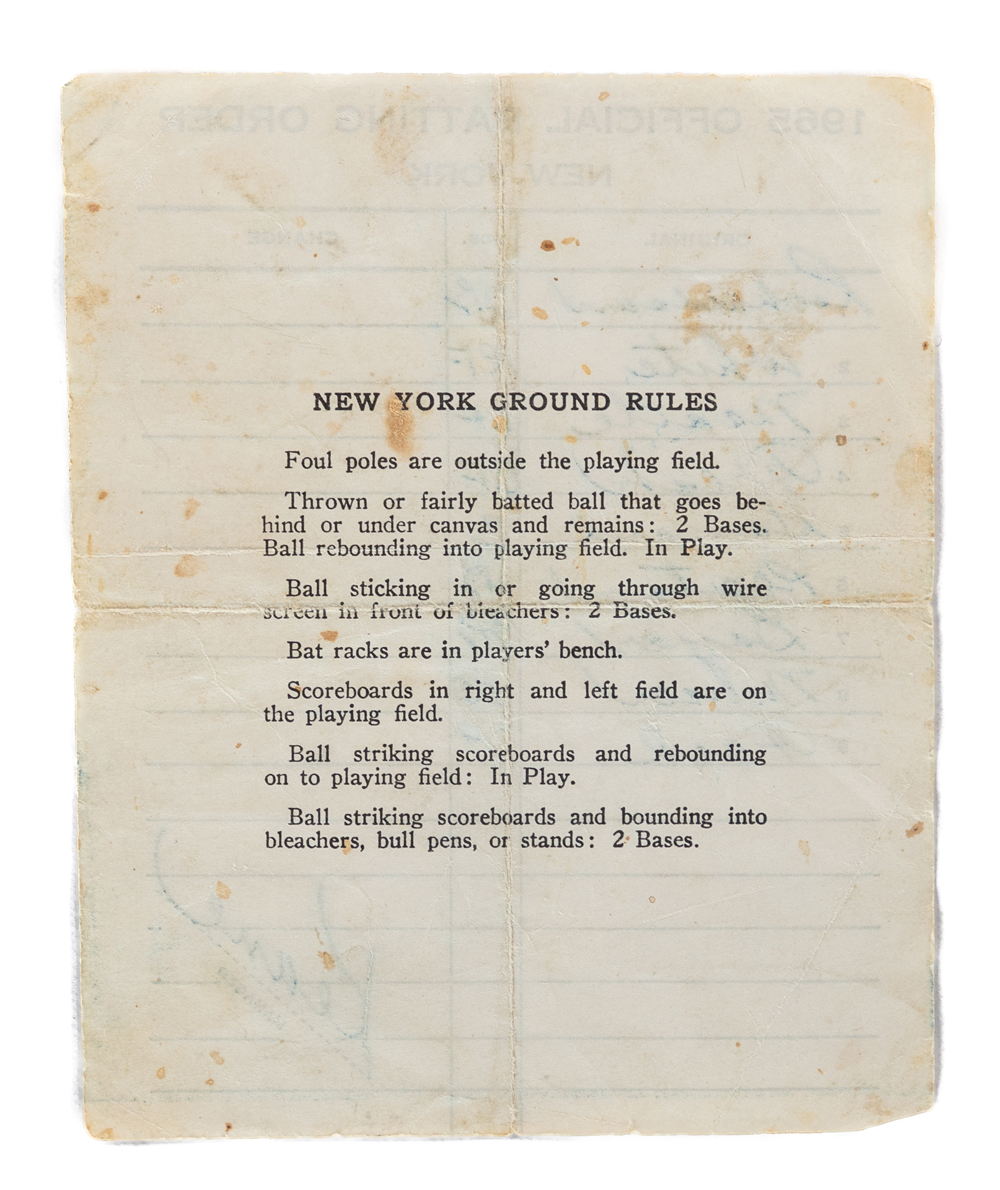 1965 OFFICIAL BATTING ORDER
NEW YORK
ORIGINAL POS. CHANGE
NEW YORK GROUND RULES
Foul poles are outside the playing field.
Thrown or fairly batted ball that goes be-
hind or under canvas and remains: 2 Bases.
Ball rebounding into playing field. In Play.
Ball sticking in or going through wire
screen in front of bleachers: 2 Bases.
Bat racks are in players' bench.
Scoreboards in right and left field are on
the playing field.
Ball striking scoreboards and rebounding
on to playing field: In Play.
Ball striking scoreboards and bounding into
bleachers, bull pens, or stands: 2 Bases.